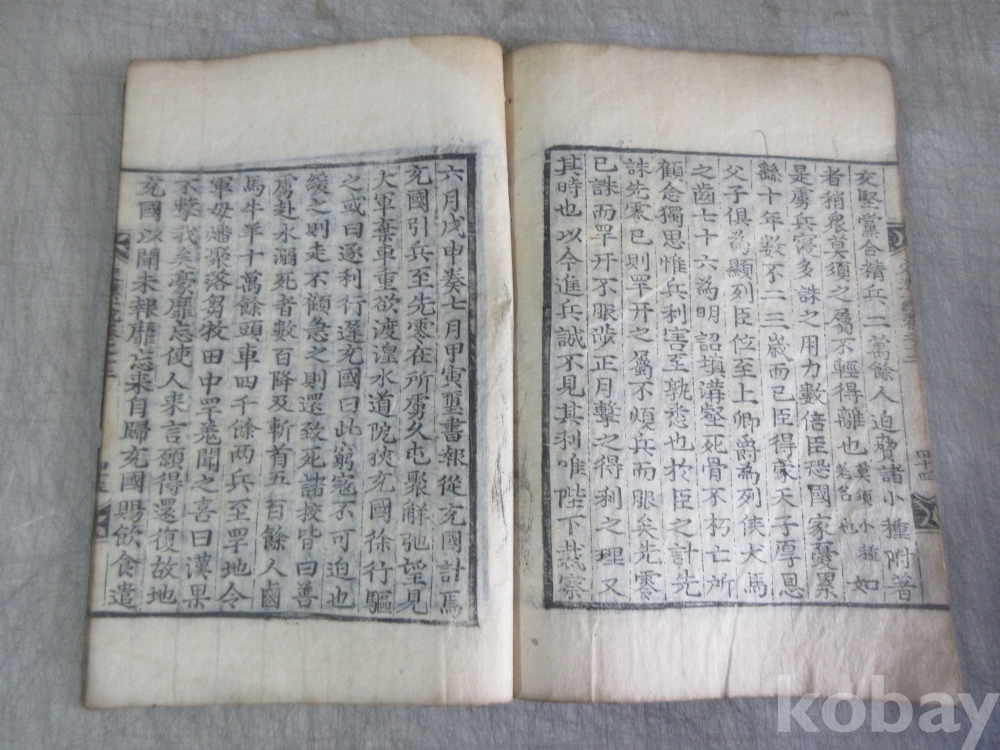 交堅黨合精兵二萬餘人迫脅諸小種附著
者稍衆莫須之屬不輕得離也莫須小種如
羌名也
是虜兵寖多誅之用力數倍臣恐國家憂累
餘十年數不二三歲而已臣得蒙天子厚恩
父子俱爲顯列臣位至上卿爵爲列侯犬馬
之齒七十六爲明詔塡溝壑死骨不朽亡所
顧念獨思惟兵利害至孰悉也於臣之計先
誅先零已則罕幵之屬不煩兵而服矣先零
已誅而罕幵不服涉正月擊之得利之理又
其時也以今進兵誠不見其利唯陛下裁察
四十四
六月戊申奏七月甲寅璽書報從充國計焉
充國引兵至先零在所虜久屯聚解弛望見
大軍棄車重欲渡湟水道阨狹充國徐行驅
之或曰逐利行遲充國曰此窮寇不可迫也
緩之則走不顧急之則還致死諸校皆曰善
虜赴水溺死者數百降及斬首五百餘人鹵
馬牛羊十萬餘頭車四千餘兩兵至罕地令
軍毋燔聚落芻牧田中罕羌聞之喜曰漢果
不擊我矣豪靡忘使人来言願得還復故地
充國以聞未報靡忘来自歸充國賜飮食遣
kobay